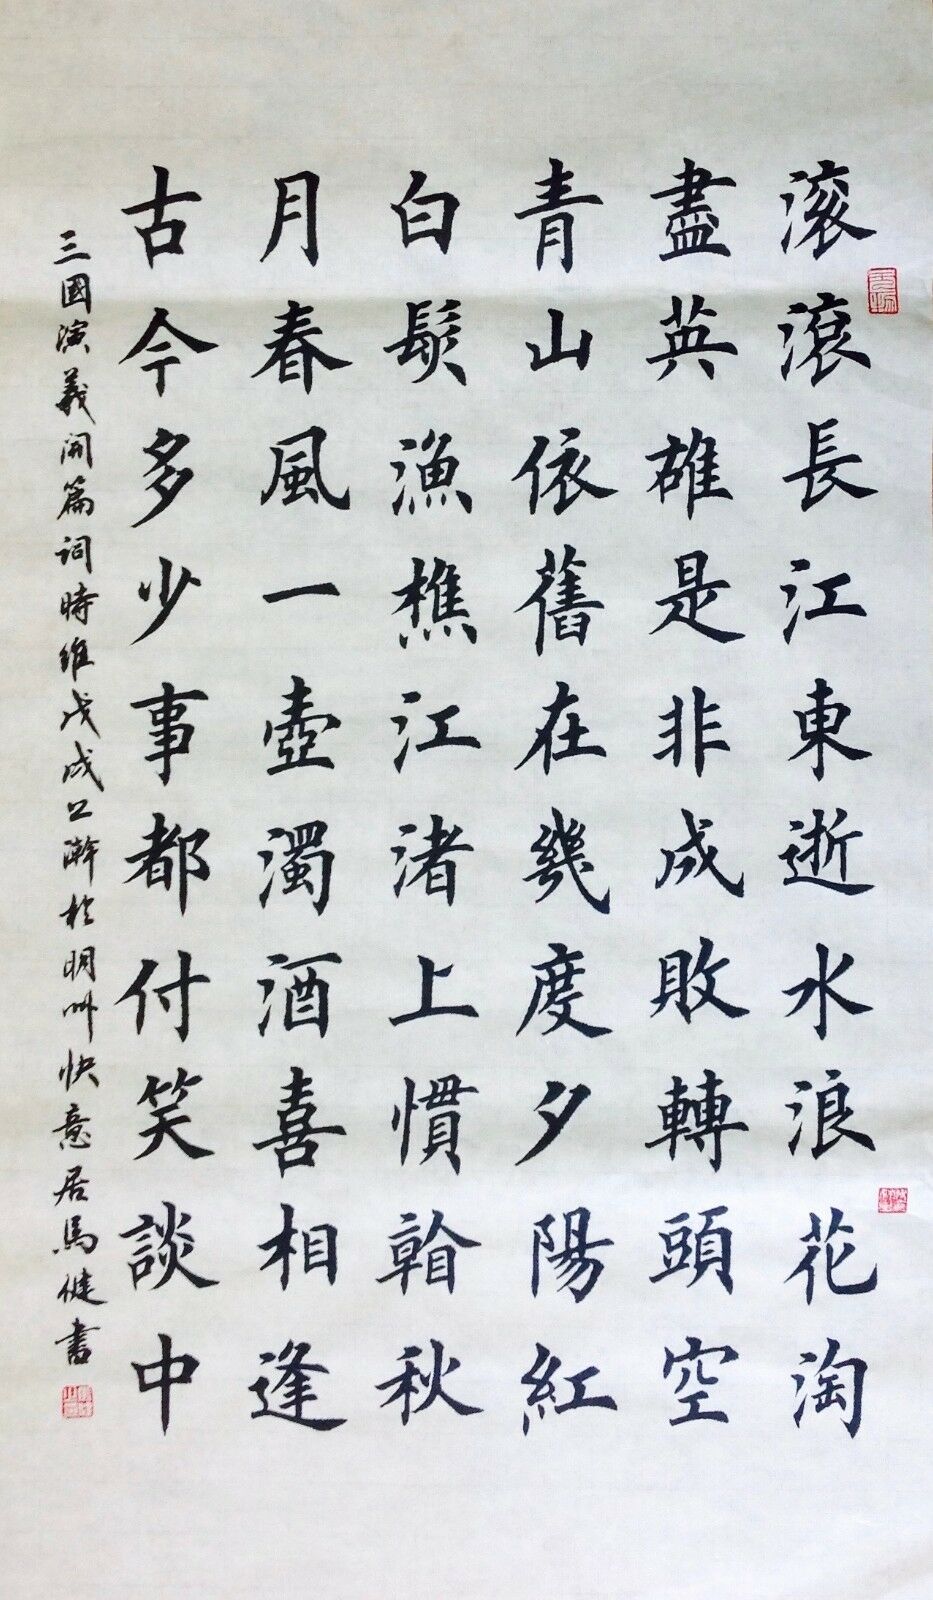 滚滾長江東逝水浪花淘
盡英雄是非成敗轉頭空
青山依舊在幾度夕陽紅
白髮漁樵江渚上慣看秋
月春風一壺濁酒喜相逢
古今多少事都付笑談中
三國演義開篇詞時維戊戌公瀚於明州快意居馬健書